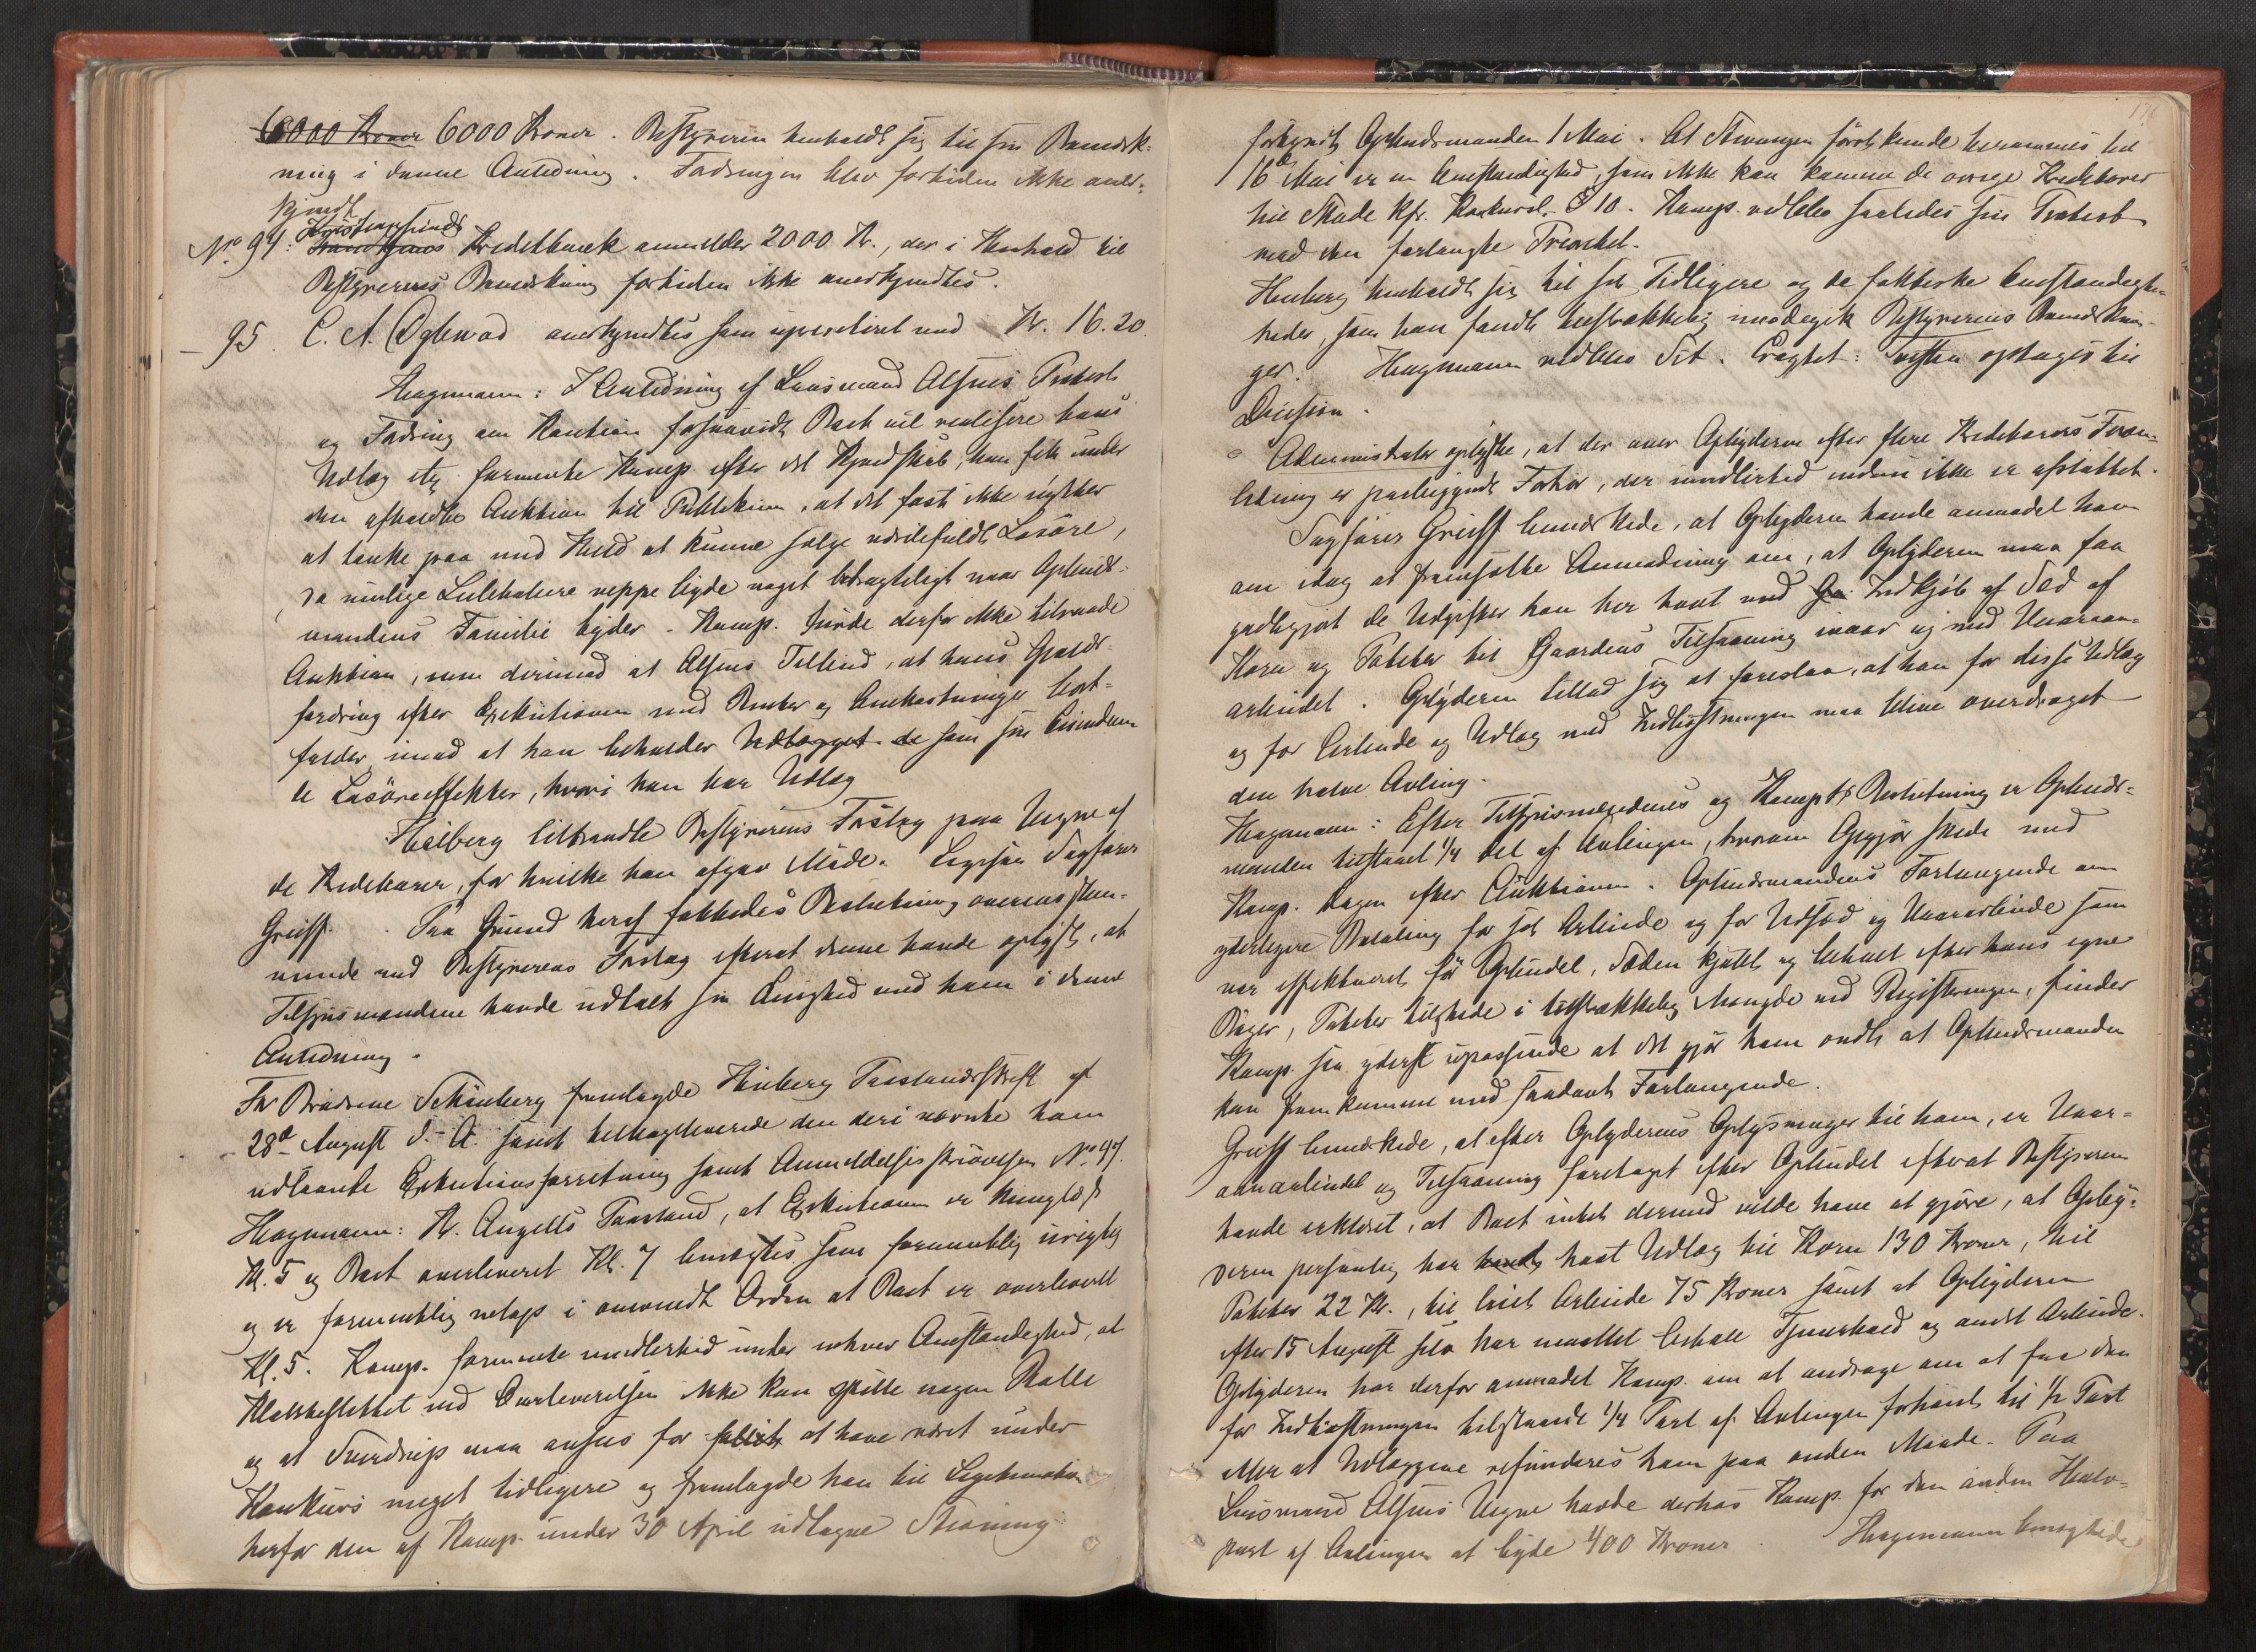 6000 Kroner 6000 Kroner. Bestyreren henholdt sig til sin Bemærk-
ning i denne Anledning. Fodringen blev fortiden ikke aner-
kjendt
Kristianssunds
No. 94: Kreditbank anmelder 2000 Kr., der i Henhold til
Bestyrerens Bemærkning fortiden ikke anerkjendtes.
— 95. C. A. anerkjendtes som uprioriteret med Kr. 16.20.
Hagemann: I Anledning af Lensmand Alsnes Protest
og Fodring om Kaution forsaavidt Boet vil realisere hans
Udlæg etc. formente Komp. efter det Kjendskab, han fik under
den afholdte Auktion til Publikum, at det fast ikke nytter
at tænke paa med Held at kunne sælge værdifuldt Løsøre,
da mulige Liebhabere neppe byde noget betragteligt naar Opbuds-
mandens Familie byder. Komp. turde derfor ikke tilraade
Auktion, men derimod at Alsnes Tilbud, at hans Gjælds-
fordring efter Exekutionen med Renter og Omkostninger bort-
falder imod at han beholder Udlægget de som sin Eiendom
de Løsøreeffekter, hvori han har Udlæg
Heiberg tiltraadte Bestyrerens Forslag paa Vegne af
de Kreditorer, for hvilke han afgav Møde. Ligesaa Sagfører
Greiff. Paa Grund heraf fattedes Beslutning overensstem-
mende med Bestyrerens Forslag efterat denne havde oplyst, at
Tilsynsmændene havde udtalt sin Enighed med ham i denne
Anledning.
For Brødrene Schönberg fremlagde Heiberg Paastandsskrift af
28de August d. A. samt tilbageleverede den deri nævnte ham
udlaante Exekutionsforretning samt Anmeldelsesskrivelsen No. 47.
Hagemann: Kr. Angells Paastand, at Exekutionen er thinglæst
Kl. 5 og Boet overleveret Kl. 7 benægtes som formentlig urigtig
og er formentlig netop i omvendt Orden at Boet er overleveret
Kl. 5. Komp. formente imidlertid under enhver Omstændighed, at
Klokkeslettet ved Overleverelsen ikke kan spille nogen Rolle
og at maa ansees for fallit at have været under
Konkurs meget tidligere og fremlagde han til Legitimation
herfor den af Komp. under 30 April udtagne Stevning
forkyndt Opbudsmanden 1 Mai. At Stevningen først kunde berammes til
16de Mai er en Omstændighed, som ikke kan komme de øvrige Kreditorer
til Skade kfr. Konkursl. § 10. Komp. vedblev saaledes sin Protest
mod den forlangte Prioritet.
Heiberg henholdt sig til sit Tidligere og de faktiske Omstændig-
heder, som han fandt tilstrækkelig imødegik Bestyrerens Bemærknin-
ger. Hagemann vedblev Sit. Eragtet: Tvisten optages til
Decision.
Administrator oplyste, at der over Opbyderen efter flere Kreditorers Foran-
ledning er paabegyndt Forhør, der imidlertid endnu ikke er afsluttet.
Sagfører Greiff bemærkede, at Opbyderen havde anmodet ham
om idag at fremsætte Anmodning om, at Opbyderen maa faa
godtgjort de Udgifter han her havt ved Indkjøb af Sæd af
Korn og Poteter til Gaardens Tilsaaning ivaar og med Vaaraan-
arbeidet. Opbyderen tillod sig at foreslaa, at han for disse Udlæg
og for Arbeide og Udlæg med Indhøstningen maa blive overdraget
den halve Avling.
Hagemann: Efter Tilsynsmændenes og Komps Beslutning er Opbuds-
manden tilstaaet 1/4 Del af Avlingen, hvorom Opgjør skede med
Komp. Dagen efter Auktionen. Opbudsmandens Forlangende om
yderligere Betaling for sit Arbeide og for Udsæd og Vaararbeide som
var effektueret før Opbudet, Sæden kjøbt og betalt efter hans egne
Bøger, Poteter tilstede i tilstrækkelig Mængde ved Registreringen, finder
Komp. saa yderst upassende at det gjør ham ondt at Opbudsmanden
kan fremkomme med saadant Forlangende.
Greiff bemærkede, at efter Opbyderens Oplysninger til ham, er Vaar-
aanarbeidet og Tilsaaning foretaget efter Opbudet efterat Bestyreren
havde erklæret, at Boet intet dermed vilde have at gjøre, at Opby-
deren personlig har havt Udlæg til Korn 130 Kroner, til
Poteter 22 Kr., til leiet Arbeide 75 Kroner samt at Opbyderen
efter 15 August selv har maattet bekoste Tjenerhold og andet Arbeide.
Opbyderen har derfor anmodet Komp. om at andrage om at faa den
for Indhøstningen tilstaaede 1/4 Part af Avlingen forhøiet til 1/2 Part
eller at Udlæggene refunderes ham paa anden Maade. Paa
Lensmand Alsnes Vegne havde derhos Komp. for den anden Halv-
part af Avlingen at byde 400 Kroner. Hagemann benægtede